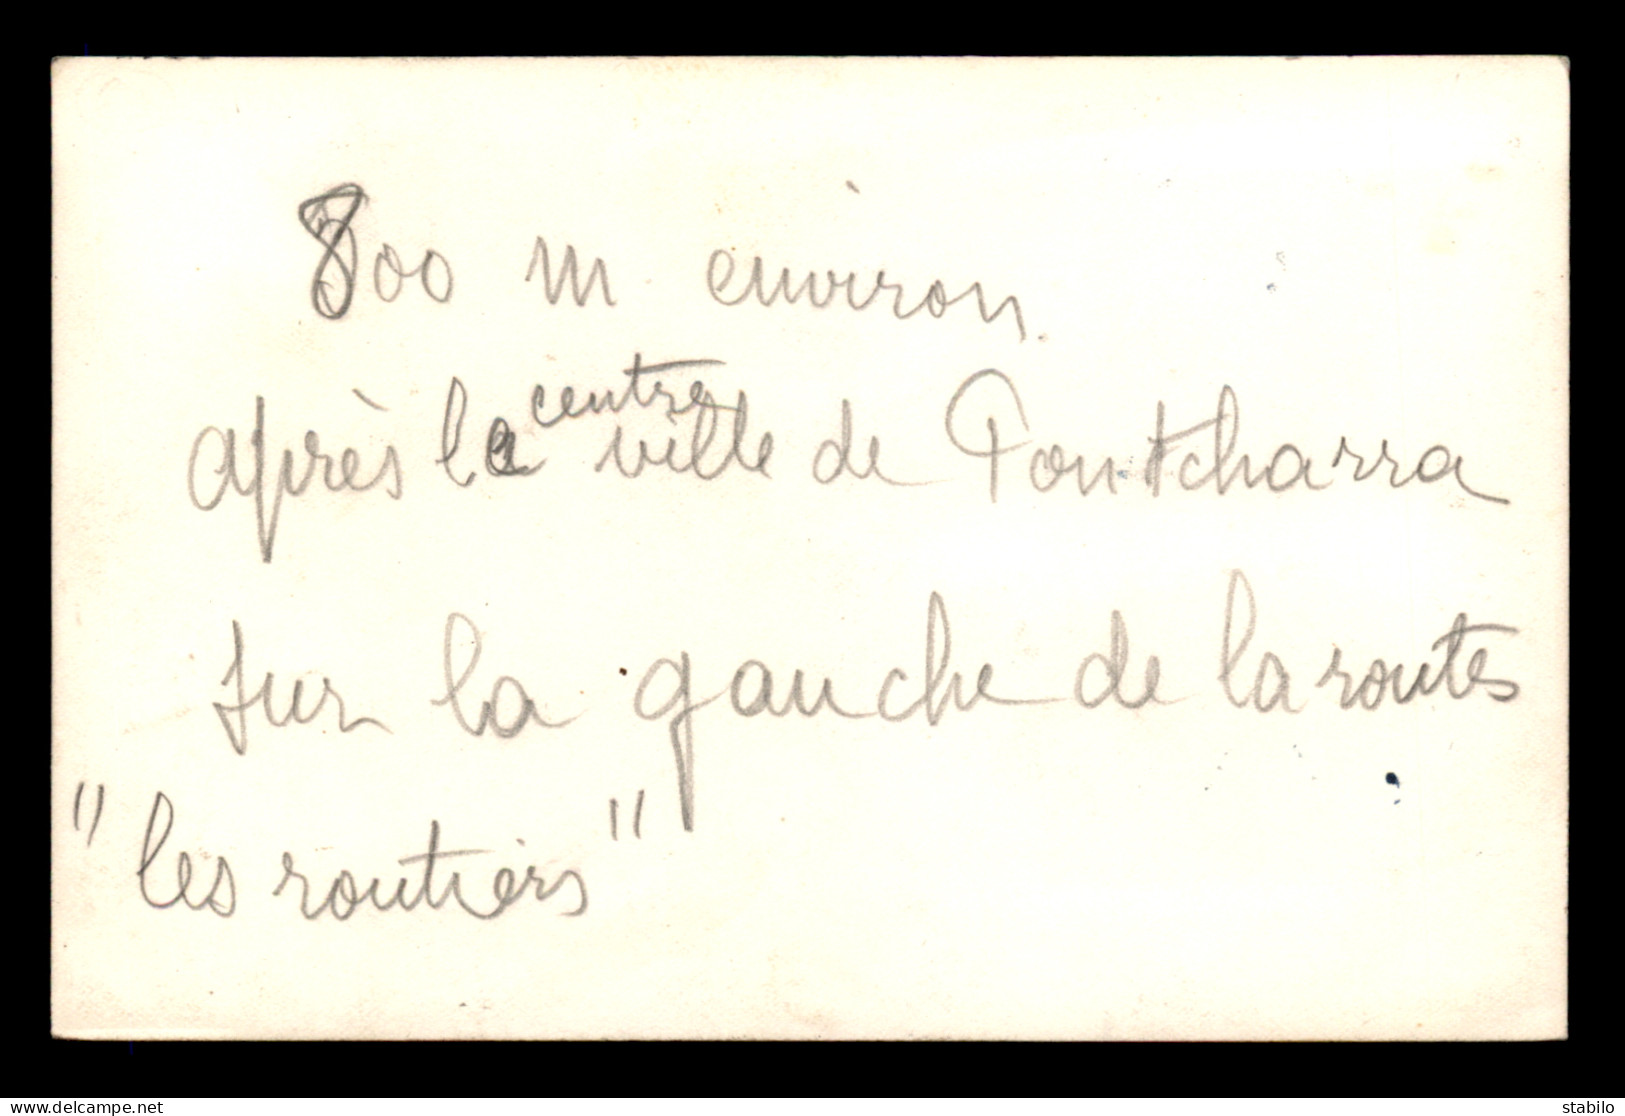 800 m environ
après le centre ville de Pontcharra
sur la gauche de la routes
"les routiers"
delcampe.net
stabilo